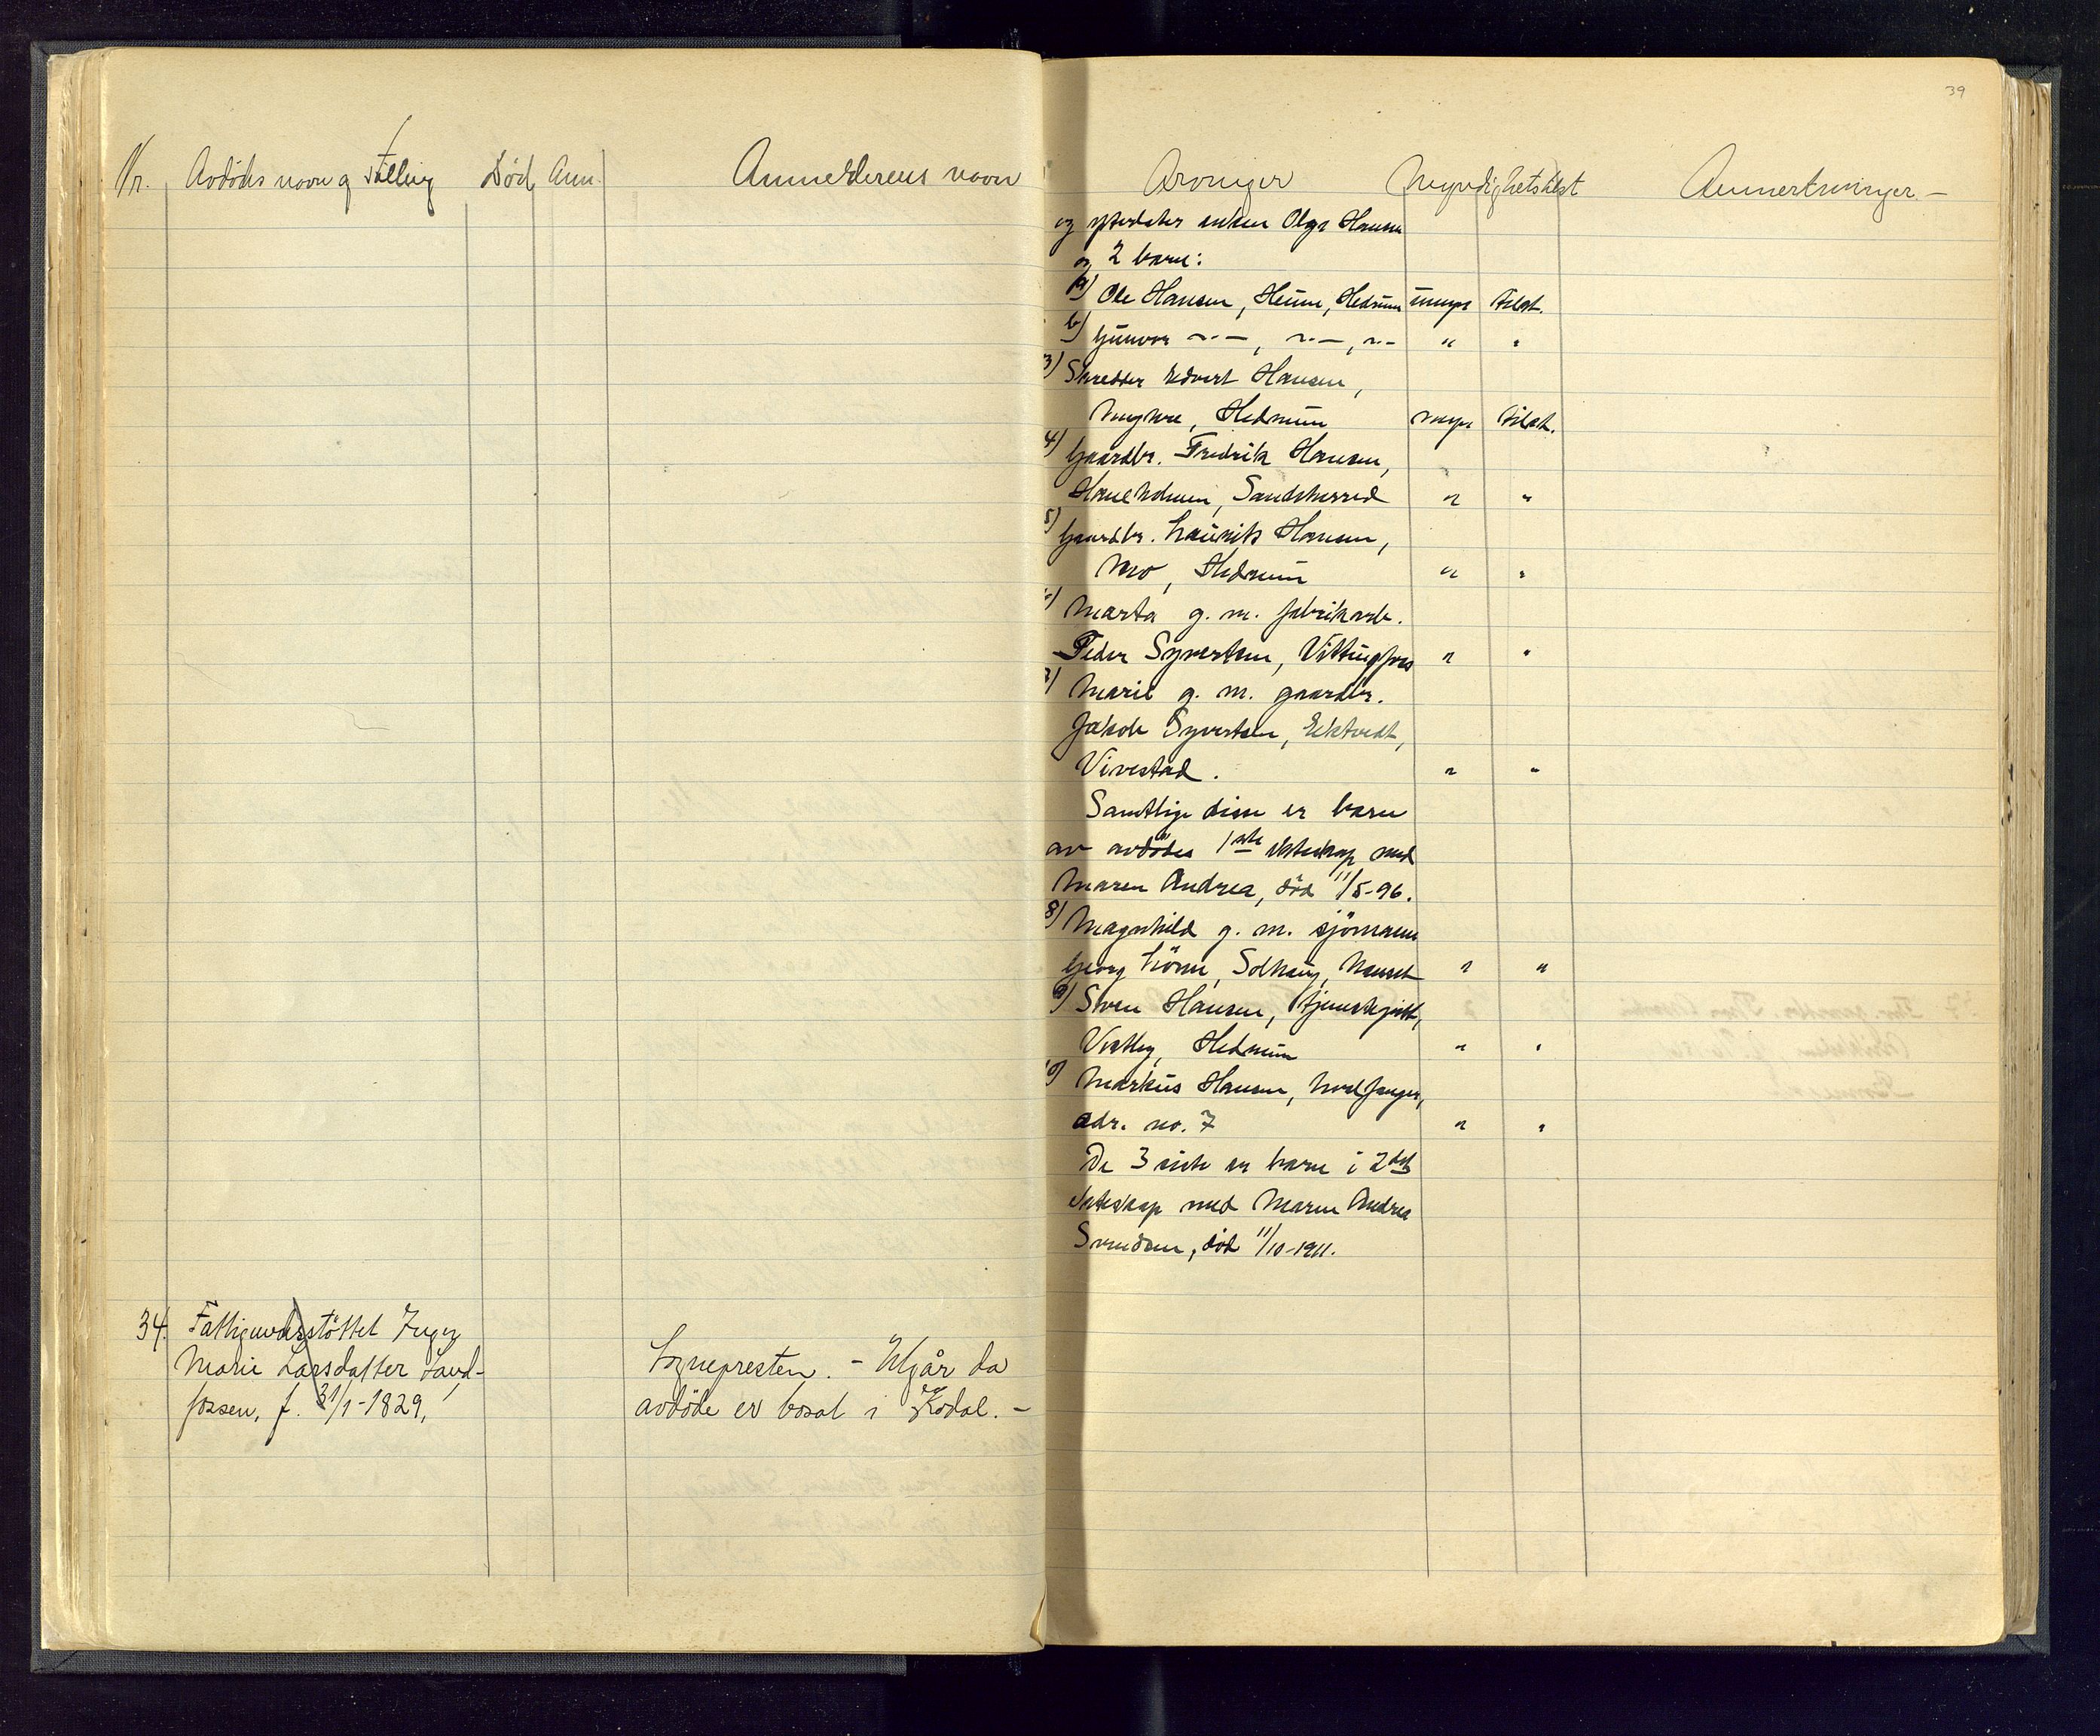 39
Nr. Avdödes navn og stilling Död Anm. Anmelderens navn
Arvinger Myndighetstilst Anmerkninger –
og efterlater enken Olga Hansen
og 2 barn:
a) Ole Hansen, Heum, Hedrum umyn tilst.
b) Gunvor –"–, –"–, –"– " "
3) Skredder Edvart Hansen,
Hedrum myn tilst.
4) Gaardbr. Fredrik Hansen,
Haneholmen, Sandeherred " "
5) Gaardbr. Lauritz Hansen,
Mo, Hedrum " "
6) Marta g. m. fabrikarb.
Peder Syvertsen, Vittingfoss " "
7) Marie g. m. gaardbr.
Jakob Syvertsen, Ektvedt,
Vivestad. " "
Samtlige disse er barn
av avdödes 1ste ekteskap med
Maren Andrea, död 11/5-96.
8) Magnhild g. m. sjömann
Georg Liönn, Solhaug, Nanset " "
9) Sven Hansen, tjenestegutt,
Vestby, Hedrum " "
10) Markus Hansen, hvalfanger,
adr. no. 7 " "
De 3 siste er barn i 2det
ekteskap med Maren Andrea
Svendsen, död 11/10-1911.
34. Fattigunderstöttet Inger
Marie Larsdatter Land-
fossen, f. 31/1-1829,
Sognepresten. – Utgår da
avdöde er bosat i Kodal. –